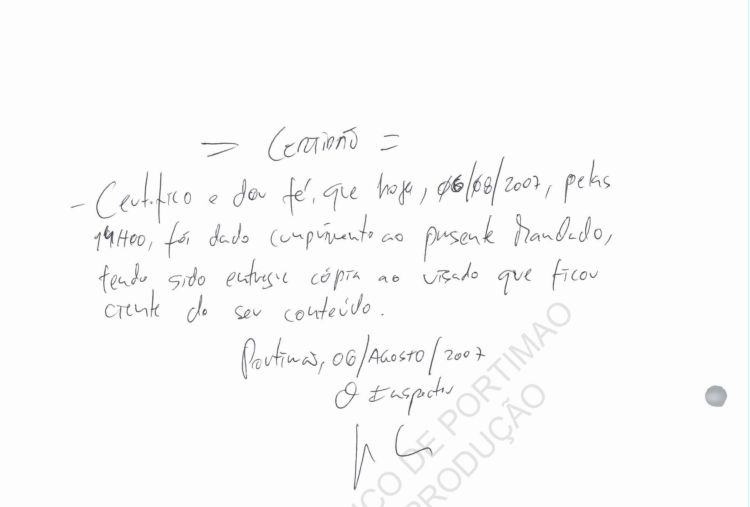 = Certidão =
- Certifico e dou fé, que hoje, 06/08/2007, pelas
19H00, foi dado cumprimento ao presente Mandado,
tendo sido entregue cópia ao visado que ficou
ciente do seu conteúdo.
Portimão, 06/Agosto/2007
O Inspector
ICO DE PORTIMAO
PRODUÇÃO